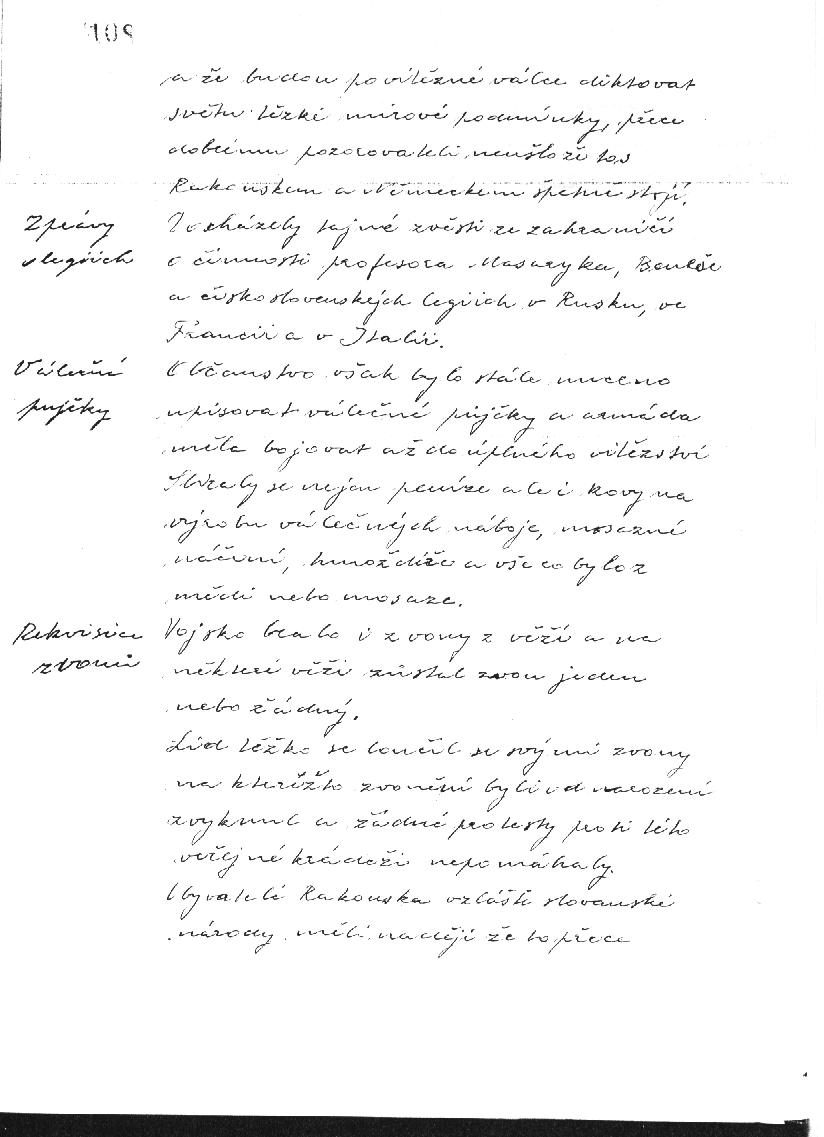 108
a že budou po vítězné válce diktovat
světu těžké mírové podmínky, přece
dobrému pozorovateli neušlo že to s
Rakouskem a Německem špatně stojí.
Zprávy
o legiích
Docházely tajné zvěsti ze zahraničí
o činnosti profesora Masaryka, Beneše
a československých legiích v Rusku, ve
Francii a v Italii.
Válečné
pujčky
Občanstvo však bylo stále nuceno
upisovat válečné pujčky a armáda
měla bojovat až do úplného vítězství
Sbíraly se nejen peníze ale i kovy na
výrobu válečných náboje, mosazné
náčiní, hmoždíře a vše co bylo z
mědi nebo mosaze.
Rekvisice
zvonů
Vojsko bralo i zvony z věží a na
některé věži zůstal zvon jeden
nebo žádný.
Lid těžko se loučil se svými zvony
na kterýžto zvonění byli od narození
zvyknul a žádné protesty proti této
veřejné krádeži nepomáhaly.
Obyvatelé Rakouska vzláště slovanské
národy měli naději že to přece